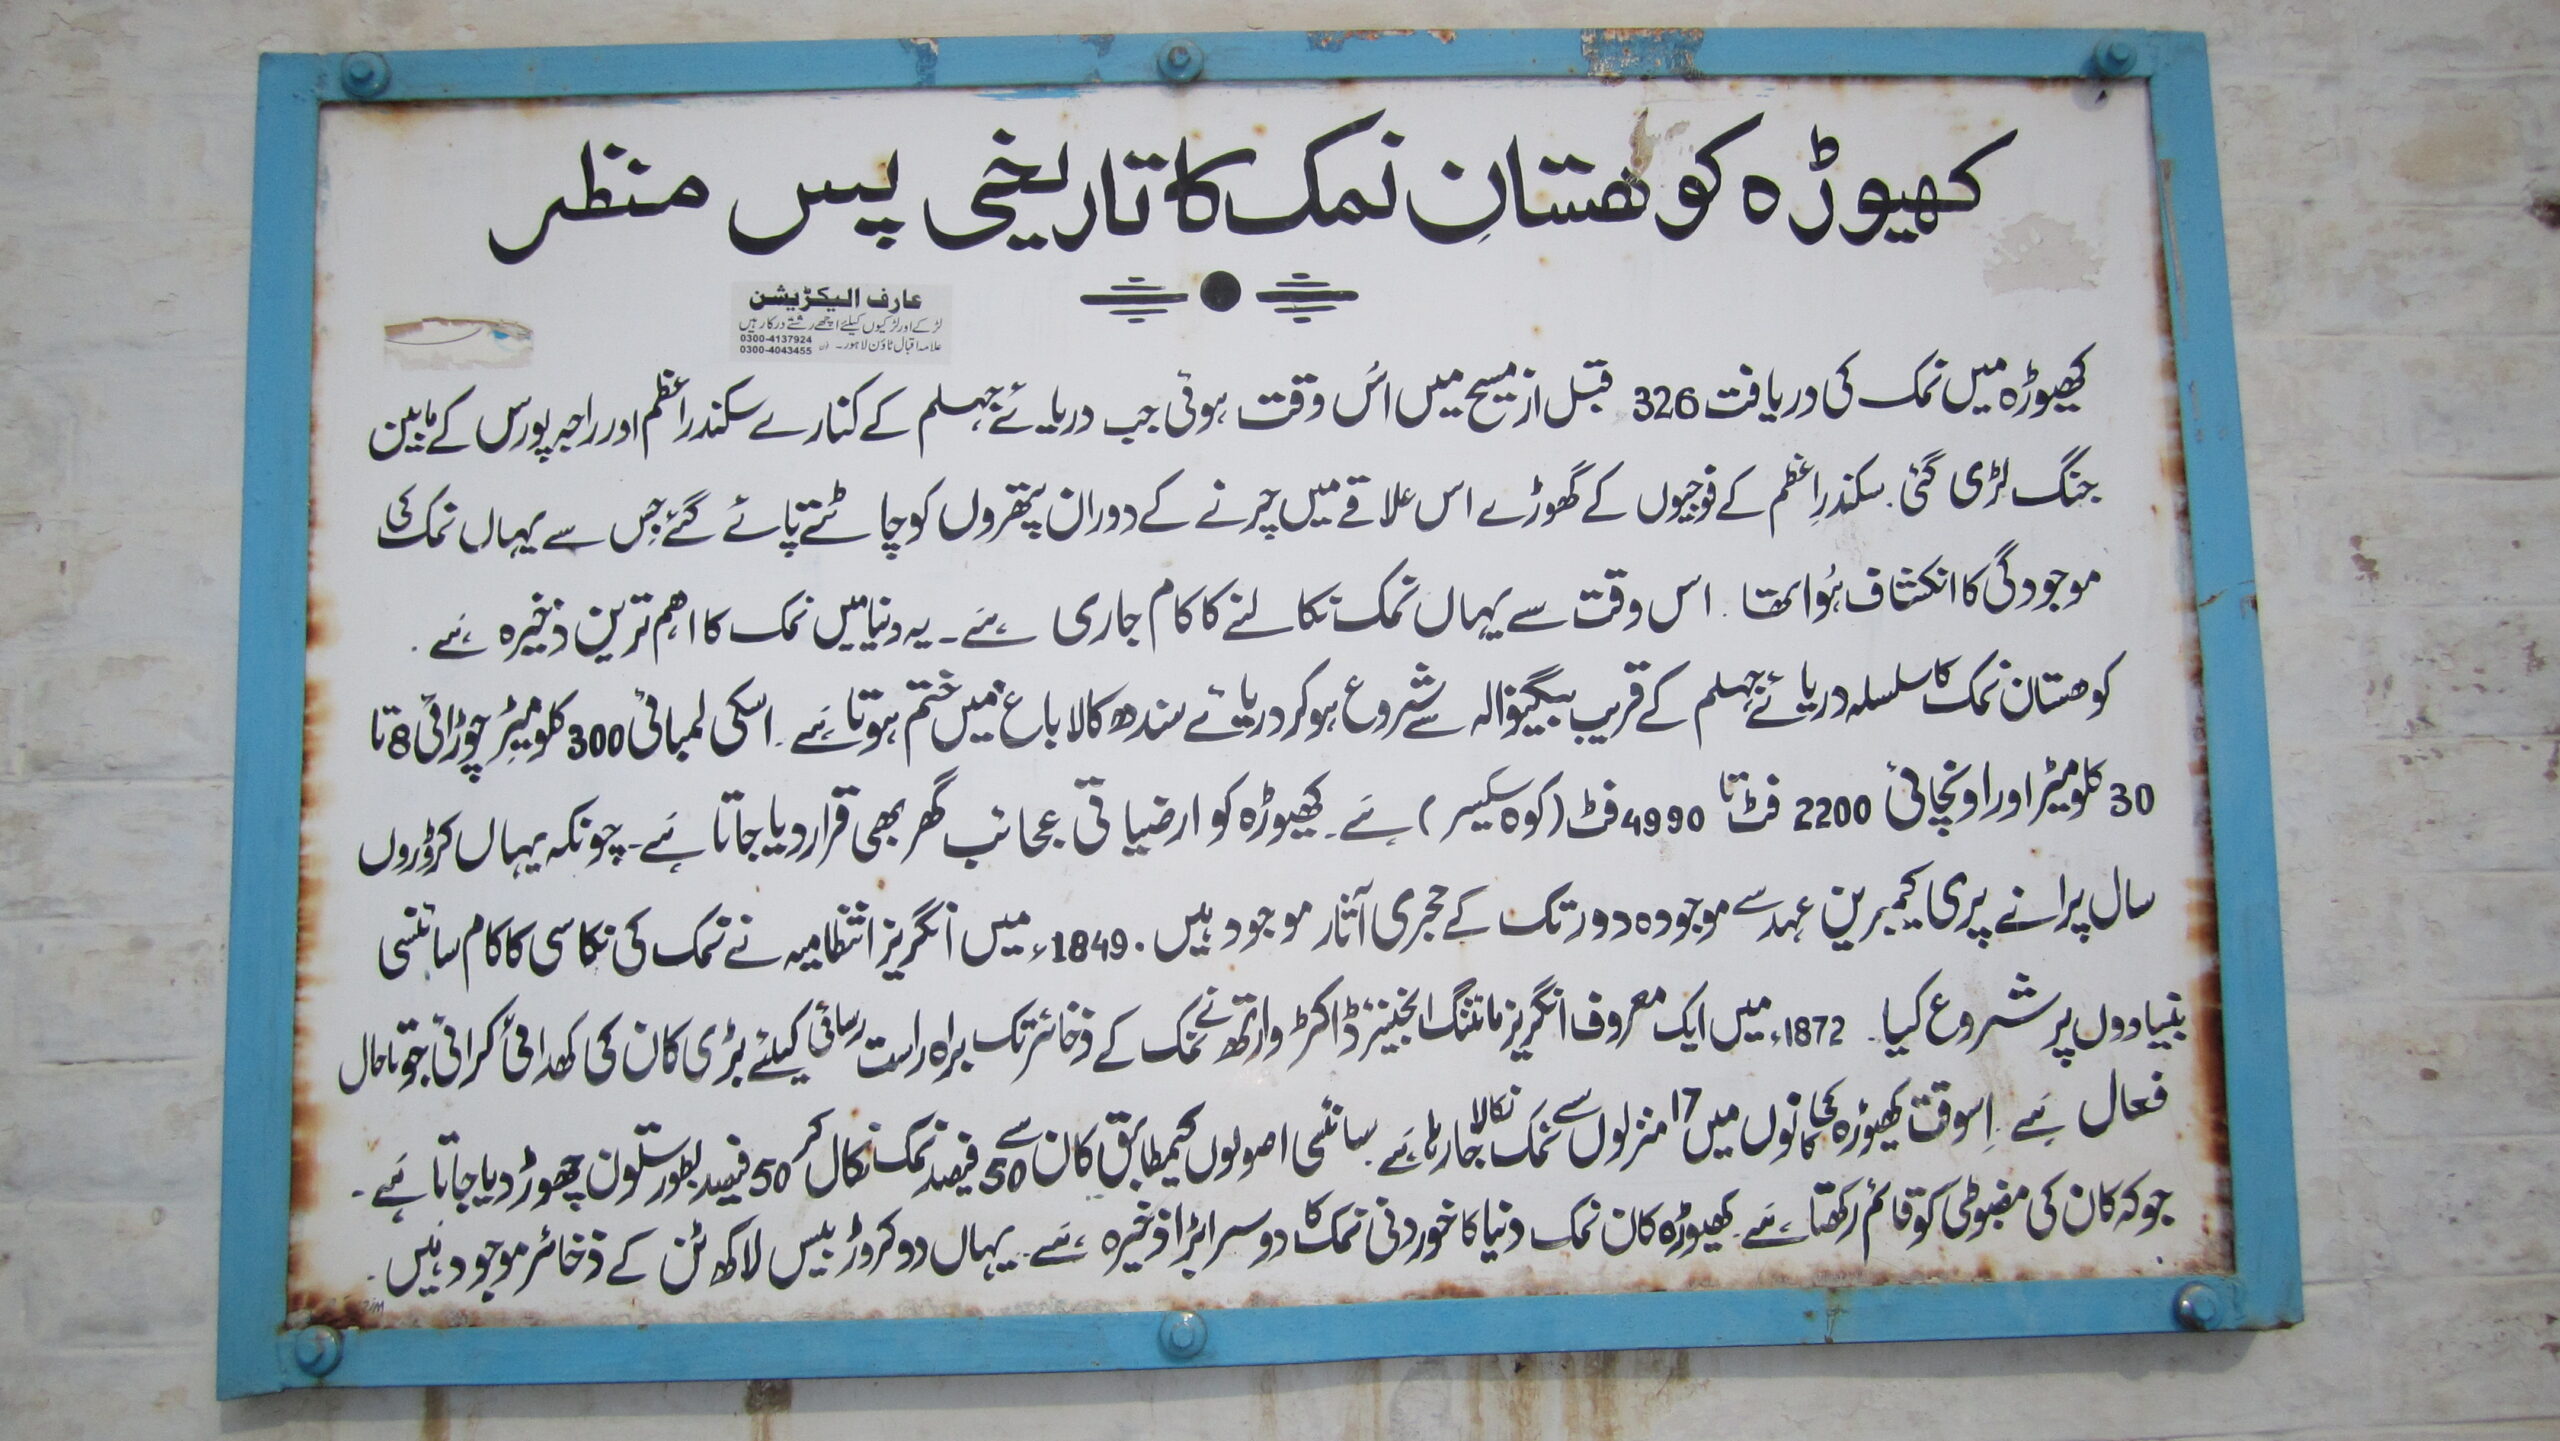 کھیوڑہ کوھستانِ نمک کا تاریخی پس منظر
عارف الیکڑیشن
لڑکے اور لڑکیوں کیلئے اچھے رشتے درکار ہیں
0300-4137924
علامہ اقبال ٹاؤن لاہور۔ فون 0300-4043455
کھیوڑہ میں نمک کی دریافت 326 قبل از مسیح میں اُس وقت ہوئی جب دریائے جہلم کے کنارے سکندر اعظم اور راجہ پورس کے مابین
جنگ لڑی گئی۔ سکندرِ اعظم کے فوجیوں کے گھوڑے اس علاقے میں چرنے کے دوران پتھروں کو چاٹتے پائے گئے جس سے یہاں نمک کی
موجودگی کا انکشاف ہُوا تھا۔ اس وقت سے یہاں نمک نکالنے کا کام جاری ہے۔ یہ دنیا میں نمک کا اھم ترین ذخیرہ ہے۔
کوھستان نمک کا سلسلہ دریائے جہلم کے قریب بیگنوالہ سے شروع ہو کر دریائے سندھ کالا باغ میں ختم ہوتا ہے۔ اسکی لمبائی 300 کلومیٹر چوڑائی 8 تا
30 کلومیٹر اور اونچائی 2200 فٹ تا 4990 فٹ (کوہ سکیسر) ہے۔ کھیوڑہ کو ارضیاتی عجائب گھر بھی قرار دیا جاتا ہے۔ چونکہ یہاں کروڑوں
سال پرانے پری کیمبرین عہد سے موجودہ دور تک کے حجری آثار موجود ہیں۔ 1849ء میں انگریز انتظامیہ نے نمک کی نکاسی کا کام سائنسی
بنیادوں پر شروع کیا۔ 1872ء میں ایک معروف انگریز مائننگ انجینئر ڈاکٹر وارتھ نے نمک کے ذخائر تک براہ راست رسائی کیلئے بڑی کان کی کھدائی کرائی جو تاحال
فعال ہے۔ اِسوقت کھیوڑہ کی کانوں میں 17 منزلوں سے نمک نکالا جا رہا ہے۔ سائنسی اصولوں کیمطابق کان سے 50 فیصد نمک نکال کر 50 فیصد بطور ستون چھوڑ دیا جاتا ہے۔
جو کہ کان کی مضبوطی کو قائم رکھتا ہے۔ کھیوڑہ کان نمک دنیا کا خوردنی نمک کا دوسرا بڑا ذخیرہ ہے۔ یہاں دو کروڑ بیس لاکھ ٹن کے ذخائر موجود ہیں۔